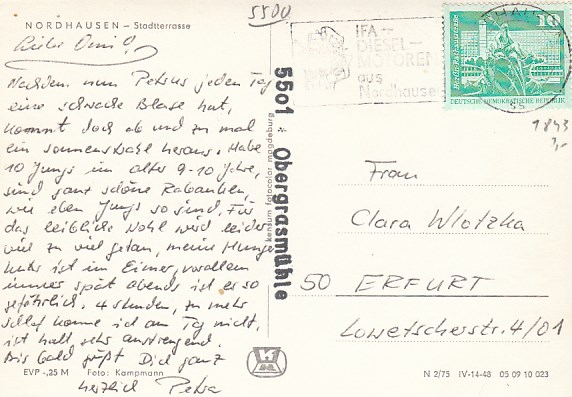 5500
NORDHAUSEN – Stadtterrasse
Liebe Omi!
Nachdem nun Petrus jeden Tag
eine schwache Blase hat,
kommt doch ab und zu mal
ein Sonnenstrahl heraus. Habe
10 Jungs im Alter 9-10 Jahre,
sind ganz schöne Rabauken,
wie eben Jungs so sind. Für
das leibliche Wohl wird leider
viel zu viel getan, meine Hunger
ist im Eimer, vorallem
immer spät abends ist es so
gefährlich. 4 Stunden, zu mehr
Schlaf komme ich am Tag nicht,
ist halt sehr anstrengend.
Bis bald grüßt Dich ganz
herzlich Petra
EVP -,25 M Foto: Kampmann
5501 * Obergrasmühle
kensum fotocolor magdeburg
IFA –
DIESEL-
MOTOREN
aus
Nordhause
10
DEUTSCHE DEMOKRATISCHE REPUBLIK
Frau
Clara Wlotzka
50 ERFURT
Lowetscherstr. 4/01
N 2/75 IV-14-48 05 09 10 023